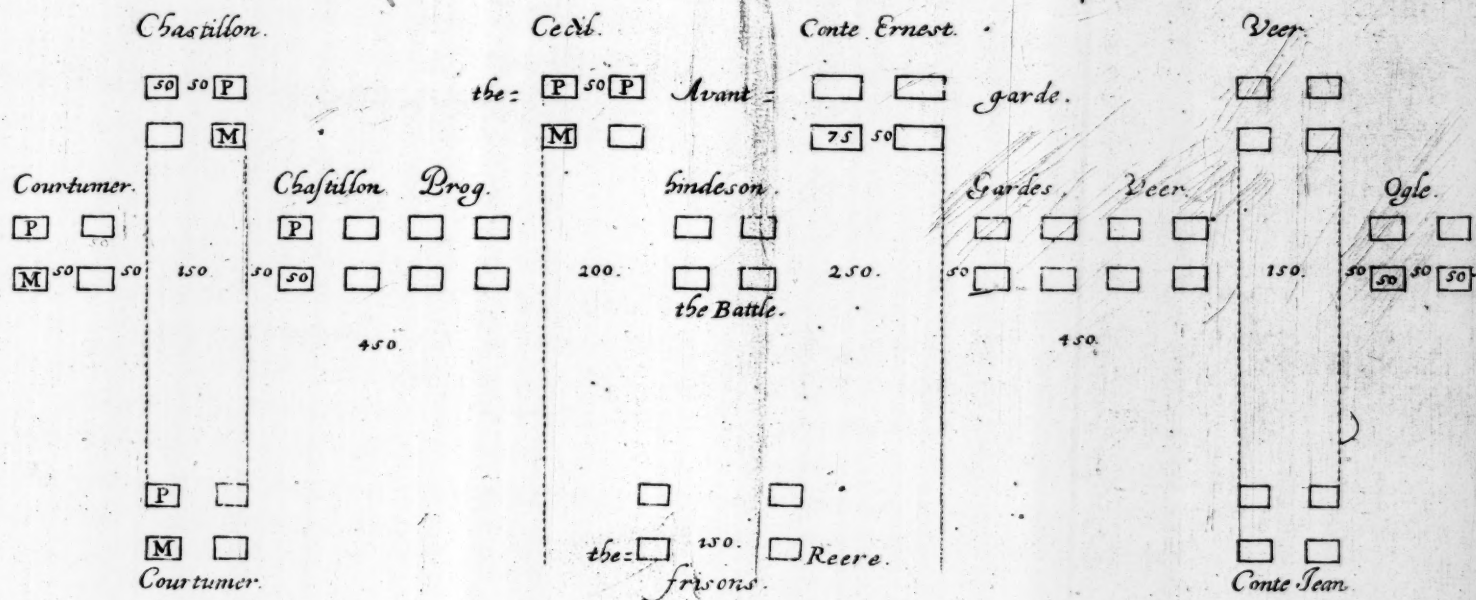 Chastillon. Cecil. Conte Ernest. Veer.
50 50 P the= P 50 P Avant= garde.
M M 75 50
Courtumer. Chastillon Prog. hindeson. Gardes. Veer Ogle.
P P
M 50 50 150 50 50 200. 250. 50 150. 50 50 50 50
the Battle.
450. 450.
P
M the= 150. Reere.
Courtumer. frisons. Conte Jean